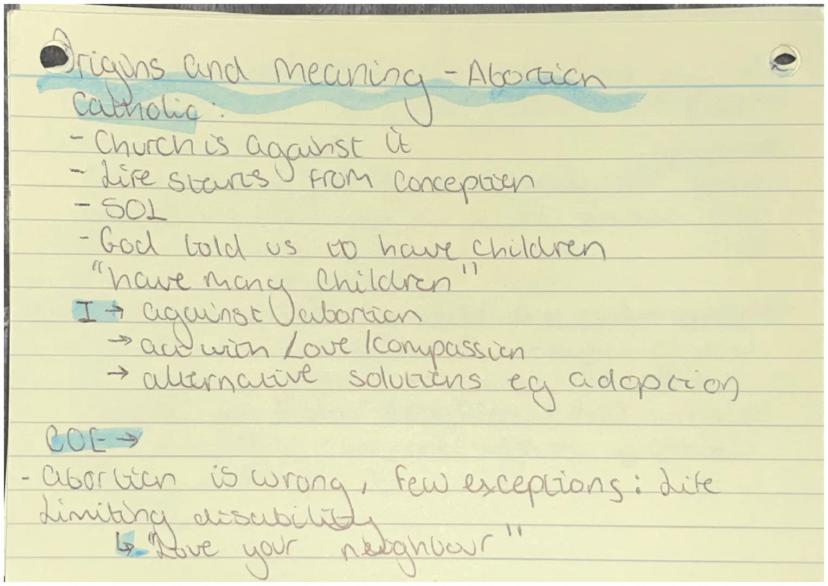 Origins and meaning - Abortion
Catholic:
- Church is against it
- Life starts from conception
- SOL
- God told us to have children
"have many children"
I → against abortion
→ act with Love/compassion
→ alternative solutions eg adoption
COE →
- abortion is wrong, few exceptions: life
limiting disability
↳ "Love your neighbour"